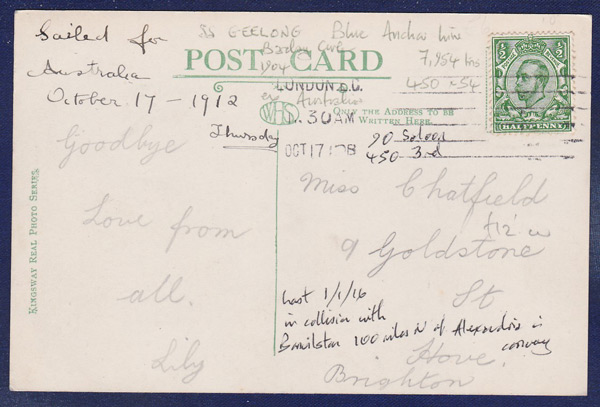 Sailed for
Australia
October 17 - 1912
Thursday
SS GEELONG Blue Anchor Line
7,954 tns
1904
450 × 54
Australia
POST CARD
LONDON E.C.
WHS
ONLY THE ADDRESS TO BE
WRITTEN HERE.
.30AM
OCT 17 12B
90 Saloon
450 3rd
½ ½
HALFPENNY
Goodbye
Love from
all.
Lily
KINGSWAY REAL PHOTO SERIES.
Miss Chatfield
£12
9 Goldstone
St
Hove.
Brighton
Lost 1/1/16
in collision with
Bonvilston 100 miles N of Alexandria in
convoy